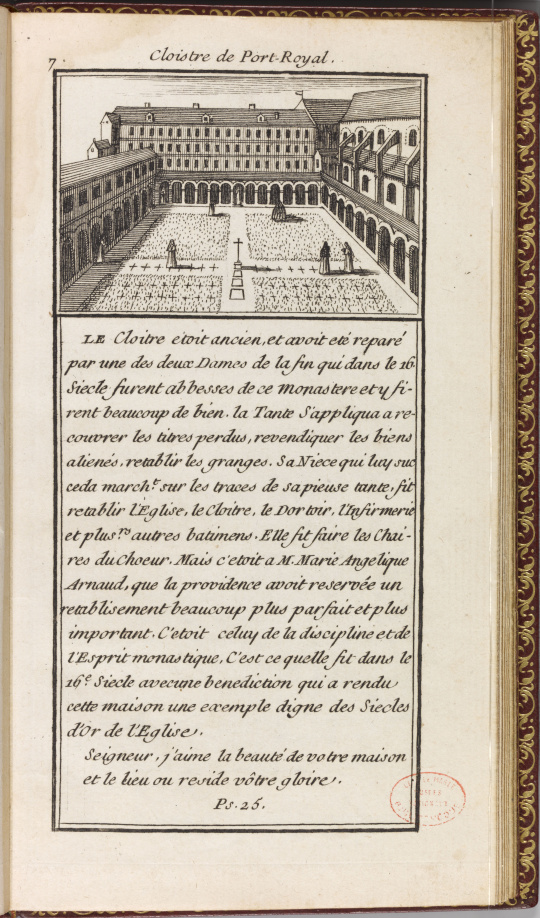 7.
Cloistre de Port-Royal.
LE Cloitre etoit ancien, et avoit eté reparé
par une des deux Dames de la fin qui dans le 16.
Siecle furent abbesses de ce Monastere et y fi-
rent beaucoup de bien. la Tante S'appliqua a re-
couvrer les titres perdus, revendiquer les biens
alienés, retablir les granges. Sa Niece qui luy suc
ceda march.t sur les traces de sa pieuse tante, fit
retablir l'Eglise, le Cloitre, le Dortoir, l'Infirmerie
et plus.rs autres batimens. Elle fit faire les Chai-
res du Choeur. Mais c'etoit a M. Marie Angelique
Arnaud, que la providence avoit reservée un
retablisement beaucoup plus parfait et plus
important. C'etoit celuy de la discipline et de
l'Esprit monastique, C'est ce quelle fit dans le
16.e Siecle avec une benediction qui a rendu
cette maison une exemple digne des Siecles
d'Or de l'Eglise.
Seigneur, j'aime la beauté de votre maison
et le lieu ou reside vôtre gloire.
Ps. 25.